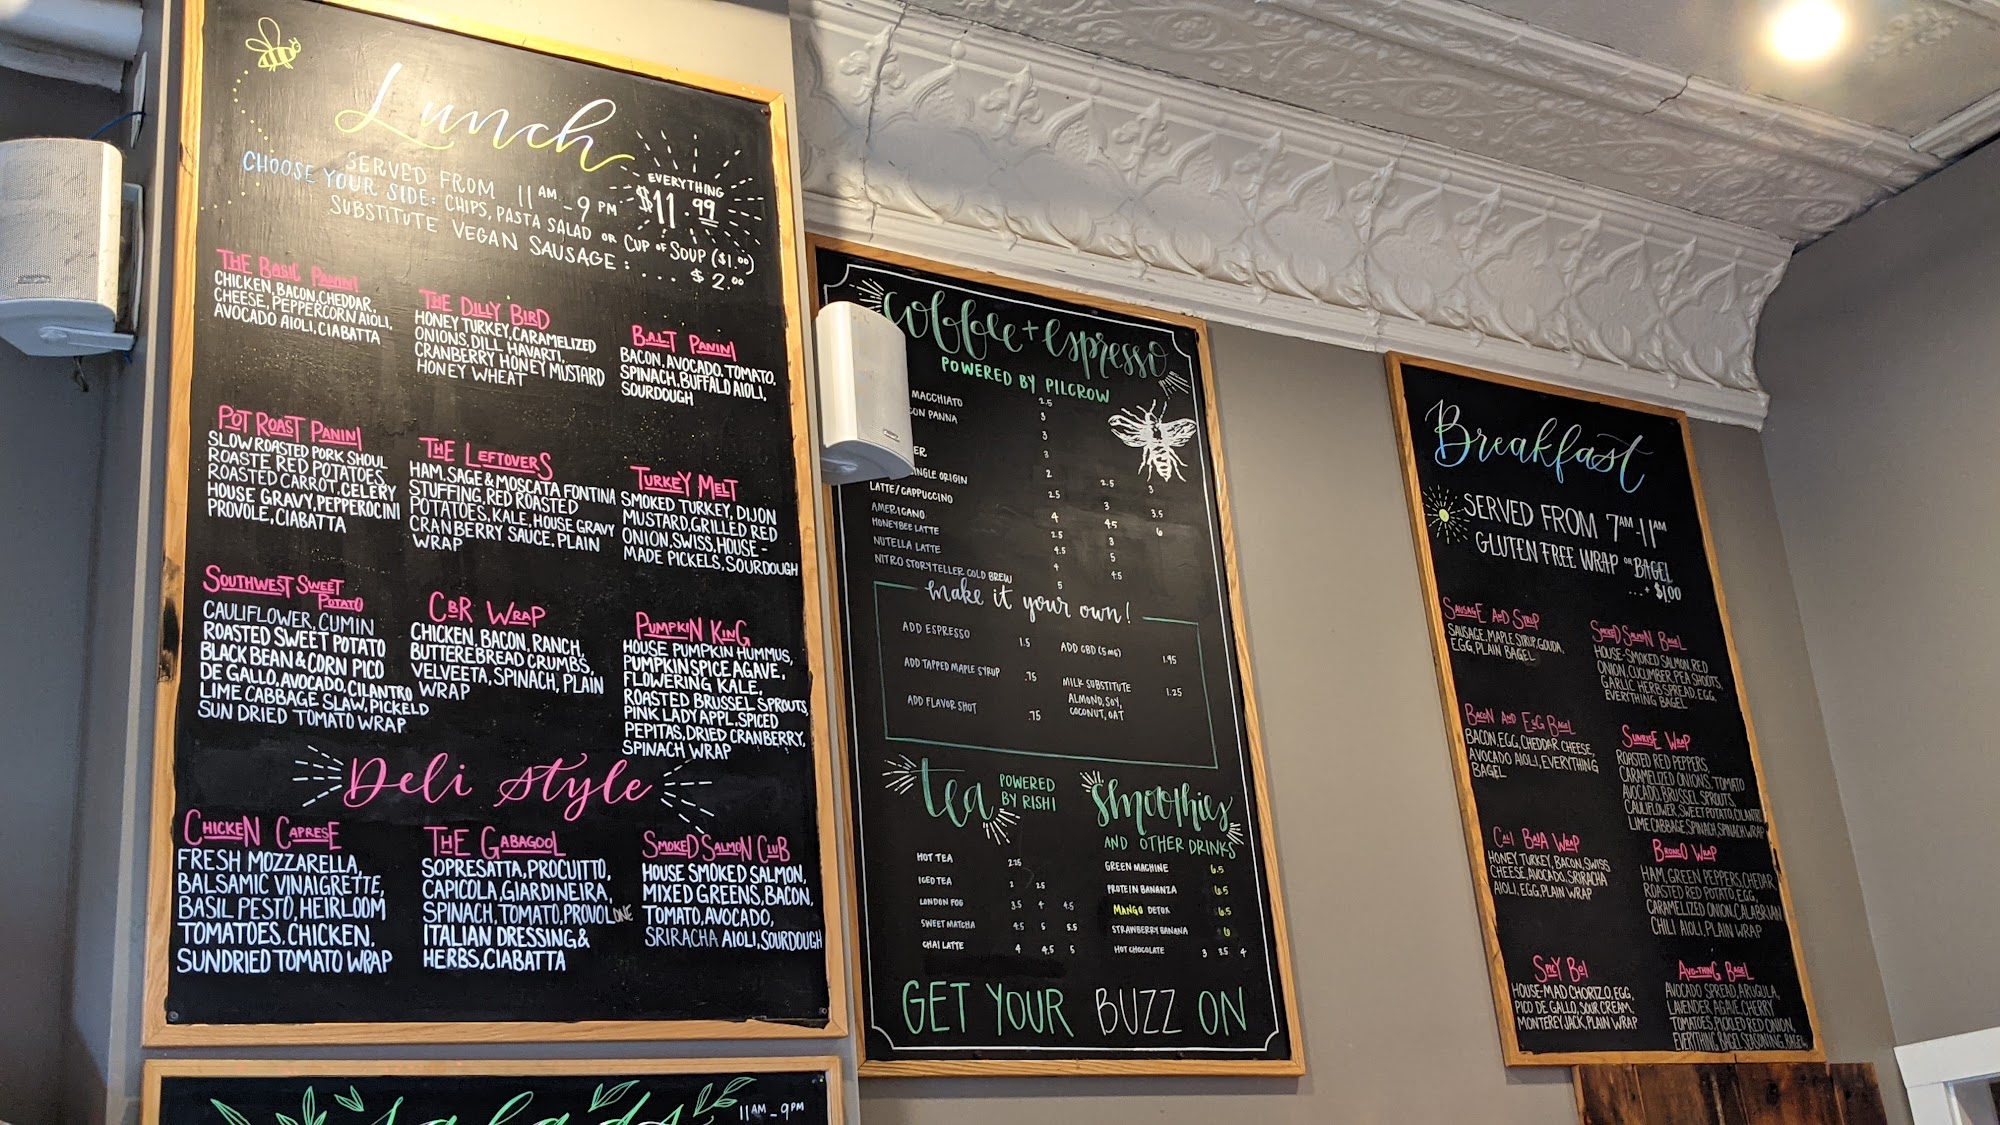 Lunch
SERVED FROM 11 AM - 9 PM
EVERYTHING
$11.99
CHOOSE YOUR SIDE: CHIPS, PASTA SALAD OR CUP OF SOUP ($1.00)
SUBSTITUTE VEGAN SAUSAGE: ... $2.00
THE BASIC PANINI
CHICKEN, BACON, CHEDDAR,
CHEESE, PEPPERCORN AIOLI,
AVOCADO AIOLI, CIABATTA
THE DILLY BIRD
HONEY TURKEY, CARAMELIZED
ONIONS, DILL HAVARTI,
CRANBERRY HONEY MUSTARD
HONEY WHEAT
B.A.L.T PANINI
BACON, AVOCADO, TOMATO,
SPINACH, BUFFALO AIOLI,
SOURDOUGH
POT ROAST PANINI
SLOW ROASTED PORK SHOUL
ROASTE RED POTATOES,
ROASTED CARROT, CELERY
HOUSE GRAVY, PEPPEROCINI
PROVOLE, CIABATTA
THE LEFTOVERS
HAM, SAGE & MOSCATA FONTINA
STUFFING, RED ROASTED
POTATOES, KALE, HOUSE GRAVY
CRANBERRY SAUCE, PLAIN
WRAP
TURKEY MELT
SMOKED TURKEY, DIJON
MUSTARD, GRILLED RED
ONION, SWISS, HOUSE-
MADE PICKELS, SOURDOUGH
SOUTHWEST SWEET
POTATO
CAULIFLOWER, CUMIN
ROASTED SWEET POTATO
BLACK BEAN & CORN PICO
DE GALLO, AVOCADO, CILANTRO
LIME CABBAGE SLAW, PICKELD
SUN DRIED TOMATO WRAP
CBR WRAP
CHICKEN, BACON, RANCH,
BUTTEREBREAD CRUMBS,
VELVEETA, SPINACH, PLAIN
WRAP
PUMPKIN KING
HOUSE PUMPKIN HUMMUS,
PUMPKIN SPICE AGAVE,
FLOWERING KALE,
ROASTED BRUSSEL SPROUTS,
PINK LADY APPL. SPICED
PEPITAS, DRIED CRANBERRY,
SPINACH WRAP
Deli Style
CHICKEN CAPRESE
FRESH MOZZARELLA,
BALSAMIC VINAIGRETTE,
BASIL PESTO, HEIRLOOM
TOMATOES, CHICKEN,
SUNDRIED TOMATO WRAP
THE GABAGOOL
SOPRESATTA, PROCUITTO,
CAPICOLA, GIARDINEIRA,
SPINACH, TOMATO, PROVOLONE
ITALIAN DRESSING &
HERBS, CIABATTA
SMOKED SALMON CLUB
HOUSE SMOKED SALMON,
MIXED GREENS, BACON,
TOMATO, AVOCADO,
SRIRACHA AIOLI, SOURDOUGH
salads
11 AM - 9 PM
coffee + espresso
POWERED BY PILCROW
MACCHIATO 2.5
CON PANNA 3
3
ER 3
SINGLE ORIGIN 2 2.5 3
LATTE/CAPPUCCINO 2.5 3 3.5
AMERICANO 4 4.5 6
HONEYBEE LATTE 2.5 3
NUTELLA LATTE 4.5 5
NITRO STORYTELLER COLD BREW 4 4.5
5
make it your own!
ADD ESPRESSO 1.5
ADD TAPPED MAPLE SYRUP .75
ADD FLAVOR SHOT .75
ADD CBD (5 MG) 1.95
MILK SUBSTITUTE 1.25
ALMOND, SOY,
COCONUT, OAT
tea
POWERED
BY RISHI
HOT TEA 2.25
ICED TEA 2 2.5
LONDON FOG 3.5 4 4.5
SWEET MATCHA 4.5 5 5.5
CHAI LATTE 4 4.5 5
smoothies
AND OTHER DRINKS
GREEN MACHINE 6.5
PROTEIN BANANZA 6.5
MANGO DETOX 6.5
STRAWBERRY BANANA 6
HOT CHOCOLATE 3 3.5 4
GET YOUR BUZZ ON
Breakfast
SERVED FROM 7AM-11AM
GLUTEN FREE WRAP OR BAGEL
...+ $1.00
SAUSAGE AND SYRUP
SAUSAGE, MAPLE SYRUP, GOUDA,
EGG, PLAIN BAGEL
SMOKED SALMON BAGEL
HOUSE-SMOKED SALMON, RED
ONION, CUCUMBER, PEA SHOOTS,
GARLIC HERB SPREAD, EGG,
EVERYTHING BAGEL
BACON AND EGG BAGEL
BACON, EGG, CHEDDAR CHEESE,
AVOCADO AIOLI, EVERYTHING
BAGEL
SUNRISE WRAP
ROASTED RED PEPPERS,
CARAMELIZED ONIONS, TOMATO
AVOCADO, BRUSSEL SPROUTS,
CAULIFLOWER, SWEET POTATO, CILANTRO
LIME CABBAGE, SPINACH, SPINACH WRAP
CALI BNA WRAP
HONEY TURKEY, BACON, SWISS
CHEESE, AVOCADO, SRIRACHA
AIOLI, EGG, PLAIN WRAP
BRONKO WRAP
HAM, GREEN PEPPERS, CHEDAR,
ROASTED RED POTATO, EGG,
CARAMELIZED ONION, CALABRIAN
CHILI AIOLI, PLAIN WRAP
SPICY BOI
HOUSE-MAD CHORIZO, EGG,
PICO DE GALLO, SOUR CREAM,
MONTEREY JACK, PLAIN WRAP
AVO-THING BAGEL
AVOCADO SPREAD, ARUGULA,
LAVENDER AGAVE, CHERRY
TOMATOES, PICKLED RED ONION,
EVERYTHING BAGEL SEASONING BAGEL